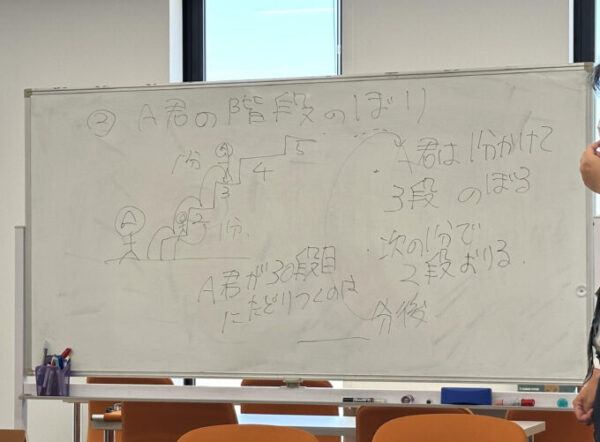 ② A君の階段のぼり
1分
A
2
3
4
5
1分
A君は1分かけて
3段 のぼる
次の1分で
2段おりる.
A君が30段目
にたどりつくのは
分後